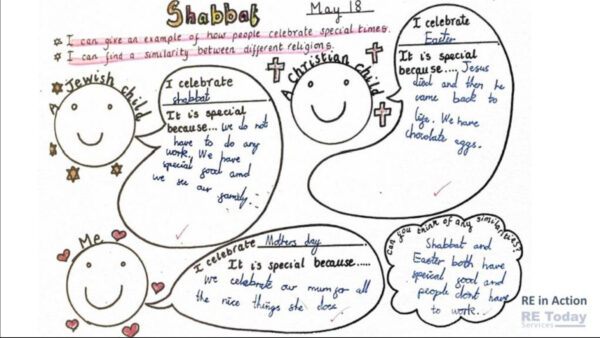 Shabbat
May 18
I can give an example of how people celebrate special times.
I can find a similarity between different religions.
A Jewish child
I celebrate
shabbat
It is special
because... we do not
have to do any
work. We have
special food and
we see our family.
A Christian child
I celebrate
Easter
It is special
because.... Jesus
died and then he
came back to
life. We have
chocolate eggs.
Me
I celebrate Mothers day
It is special because.....
we celebrate our mum for all
the nice things she does
Can you think of any similarities?
Shabbat and
Easter both have
speical food and
people dont have
to work.
RE in Action
RE Today
Services